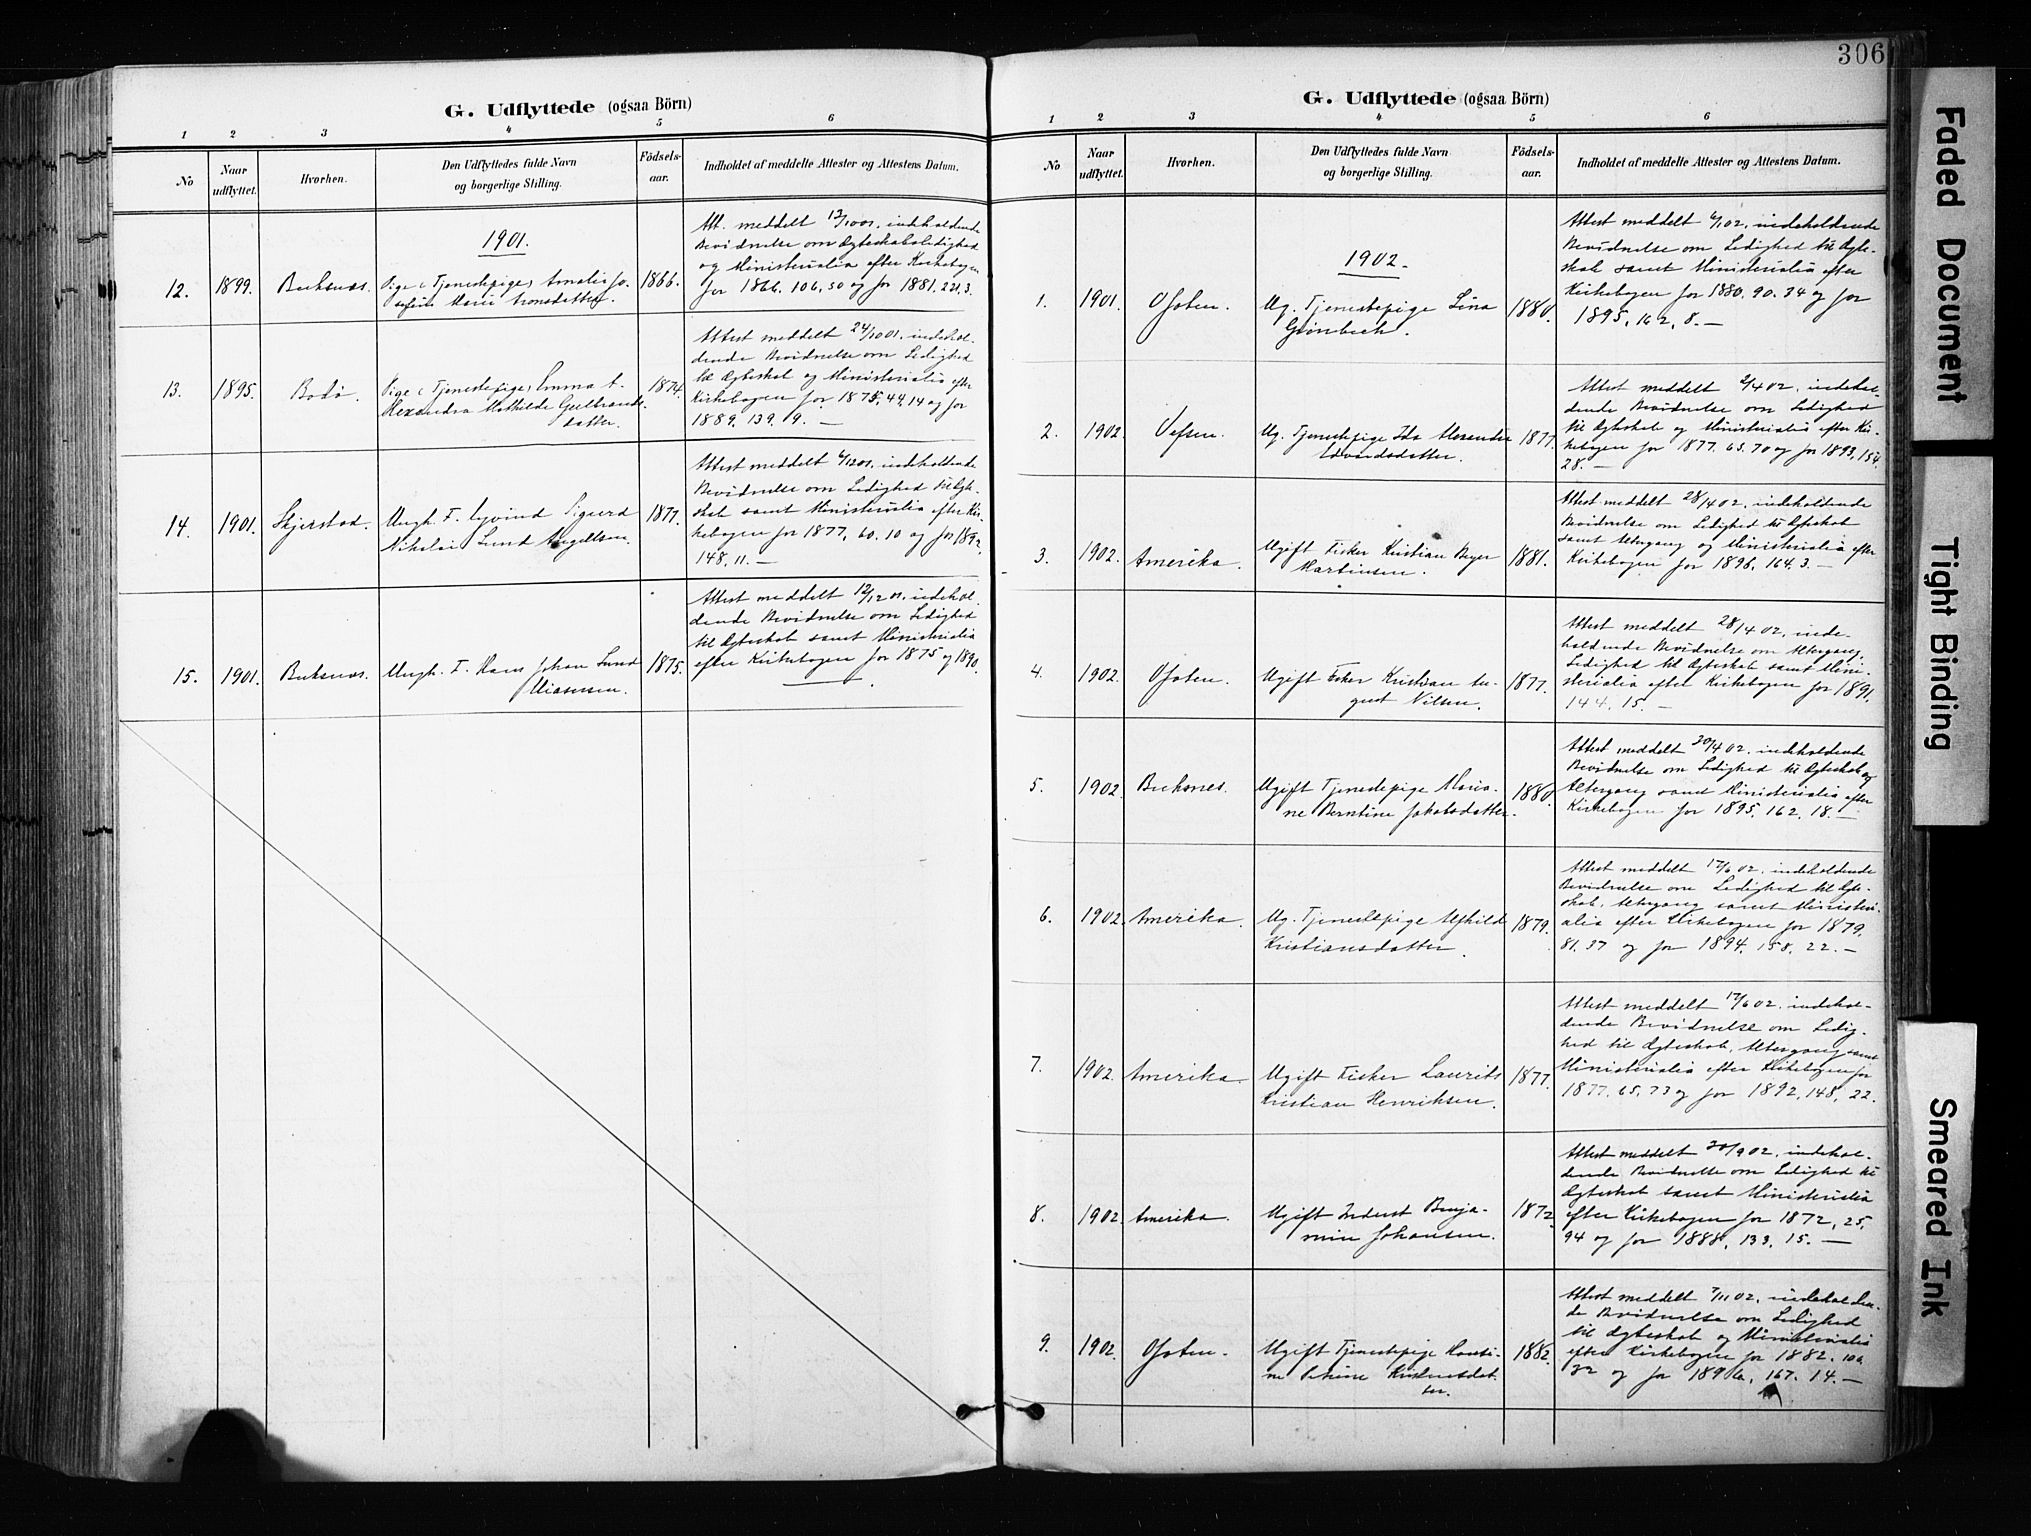 306
G. Udflyttede (ogsaa Börn)
1 2 3 4 5 6
No Naar udflyttet. Hvorhen. Den Udflyttedes fulde Navn og borgerlige Stilling. Födsels-aar. Indholdet af meddelte Attester og Attestens Datum.
1901.
12. 1899. Buksnæs. Pige (Tjenestepige) Amalie Jo-
sefine Marie 1866.
Att. meddelt 12/10 01, indeholdende
Bevidnelse om Ægteskabsledighed
og Ministerialia efter Kirkebogen
for 1866. 106, 50 og for 1881. 221, 3.
13. 1895. Bodø. Pige (Tjenestepige) Emma A-
lexandra Mathilde Gulbrands-
datter. 1874.
Attest meddelt 24/10 01, indehol-
dende Bevidnelse om Ledighed
til Ægteskab og Ministerialia efter
Kirkebogen for 1875, 44, 14 og for
1889. 139. 19. —
14. 1901. Skjerstad. Ungk. F. Eyvind Sigurd
Nikolai Lund Angellsen. 1877.
Attest meddelt 6/12 01, indeholdende
Bevidnelse om Ledighed til Ægte-
skab samt Ministerialia efter Kir-
kebogen for 1877, 60. 10 og for 1892,
148, 11. —
15. 1901. Buksnæs. Ungk. F. Hans Johan Lund
1875.
Attest meddelt 12/12 01, indehol-
dende Bevidnelse om Ledighed
til Ægteskab samt Ministerialia
efter Kirkebogen for 1875 og 1890.
G. Udflyttede (ogsaa Börn)
1 2 3 4 5 6
No Naar udflyttet. Hvorhen. Den Udflyttedes fulde Navn og borgerlige Stilling. Födsels-aar. Indholdet af meddelte Attester og Attestens Datum.
1902.
1. 1901. Ofoten. Ug. Tjenestepige Lina
Grønbech. 1880.
Attest meddelt 6/1 02, indeholdende
Bevidnelse om Ledighed til Ægte-
skab samt Ministerialia efter
Kirkebogen for 1880. 90. 34 og for
1895, 162, 8. —
2. 1902. Vefsen. Ug. Tjenestepige Ida Alexandra
Edvardsdatter. 1877.
Attest meddelt 2/4 02, indehol-
dende Bevidnelse om Ledighed
til Ægteskab og Ministerialia efter Kir-
kebogen for 1877. 65. 70 og for 1893, 154.
28. —
3. 1902. Amerika. Ugift Fisker Kristian Beyer
Martinsen. 1881.
Attest meddelt 28/4 02, indeholdende
Bevidnelse om Ledighed til Ægteskab
samt Altergang og Ministerialia efter
Kirkebogen for 1896, 164. 3. —
4. 1902. Ofoten. Ugift Fisker Kristian Au-
gust Nilsen. 1877.
Attest meddelt 28/4 02, inde-
holdende Bevidnelse om Altergang,
Ledighed til Ægteskab samt Mini-
sterialia efter Kirkebogen for 1891,
144, 15. —
5. 1902. Buksnes. Ugift Tjenestepige Maria-
ne Berntine Jakobsdatter. 1880.
Attest meddelt 30/4 02, indeholdende
Bevidnelse om Ledighed til Ægteskab og
Altergang samt Ministerialia efter
Kirkebogen for 1895, 162, 18. —
6. 1902. Amerika. Ug. Tjenestepige Alfhild
Kristiansdatter. 1879.
Attest meddelt 17/6 02, indeholdende
Bevidnelse om Ledighed til Ægte-
skab, Altergang samt Ministeri-
alia efter Kirkebogen for 1879.
81. 37 og for 1894, 158. 22. —
7. 1902. Amerika. Ugift Fisker Laurits
Kristian Henriksen. 1877.
Attest meddelt 17/6 02, indehol-
dende Bevidnelse om Ledig-
hed til Ægteskab, Altergang samt
Ministerialia efter Kirkebogen for
1877, 65, 73 og for 1892, 148, 22.
8. 1902. Amerika. Ugift Inderst Benja-
min Johansen. 1872.
Attest meddelt 30/9 02, indehol-
dende Bevidnelse om Ledighed til
Ægteskab samt Ministerialia
efter Kirkebogen for 1872, 25,
94 og for 1888, 133, 15. —
9. 1902. Ofoten. Ugift Tjenestepige
1882.
Attest meddelt 7/11 02, indeholden-
de Bevidnelse om Ledighed
til Ægteskab og Ministerialia
efter Kirkebogen for 1882. 106
32 og for 1896, 167. 14. —
Faded Document
Tight Binding
Smeared Ink